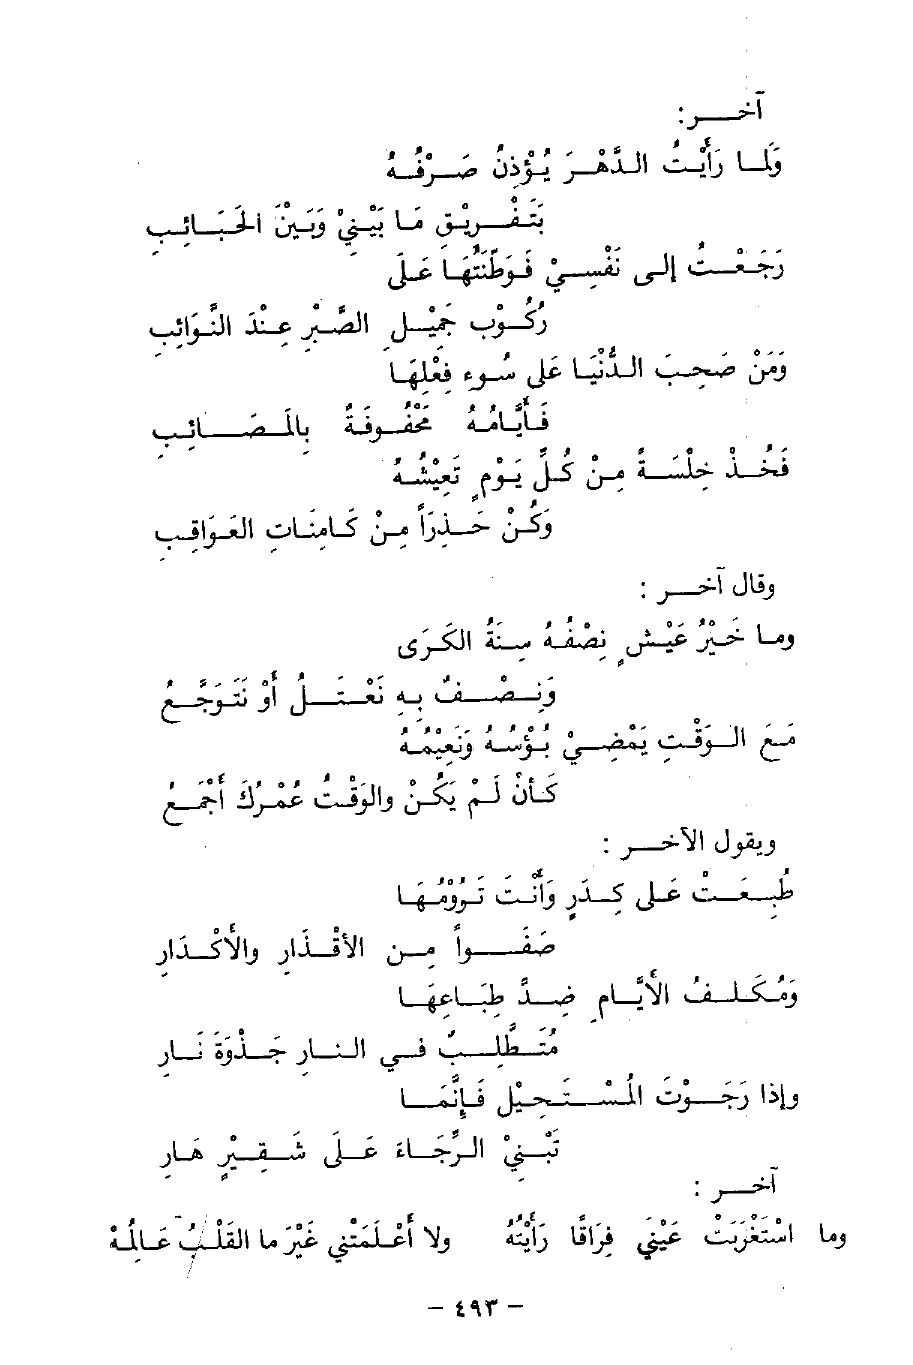 آخـــر:
وَلَمـا رَأَيْـتُ الـدَّهْـرَ يُـؤْذِنُ صَـرْفُـهُ
بَتَـفْـرِيْـقِ مَـا بَيْـنِيْ وَبَـيْنَ الحَبَـائِـبِ
رَجَـعْـتُ إلـى نَفْسِـيْ فَـوَطَّنَتُهَـا عَـلَى
رُكُـوْبِ جَمِيْـلِ الصَّبْـرِ عِنْـدَ النَّـوَائِبِ
وَمَنْ صَحِـبَ الـدُّنْيَـا عَلَى سُـوءِ فِعْلِهَـا
فَـأَيَّـامُـهُ مَحْفُـوفَـةٌ بالمَـصَـائِـبِ
فَخُـذْ خِلْسَـةً مِـنْ كُـلِّ يَـوْمٍ تَعِيْشُـهُ
وَكُـنْ حَـذِرَاً مِـنْ كَـامِنَـاتِ العَـوَاقِـبِ
وقال آخـــر :
ومـا خَـيْرُ عَيْـشٍ نِصْفُـهُ سِـنَةُ الكَـرَى
وَنِـصْـفٌ بِـهِ نَعْـتَـلُ أَوْ نَتَـوَجَّـعُ
مَـعَ الـوَقْـتِ يَمْضِـيْ بُـؤْسُـهُ وَنَعِيْمُـهُ
كَـأنْ لَـمْ يَكُـنْ والوَقْـتُ عُمْـرُكَ أَجْمَـعُ
ويقول الآخـــر :
طُـبِـعَـتْ عَـلى كِـدَرٍ وَأَنْـتَ تَـرُوْمُـهَـا
صَـفَـــواً مِـــن الأقْـذَارِ والأَكْـدَارِ
وَمُـكَـلـفُ الأيَّـامِ ضِـدَّ طِبَـاعِهَـا
مُتَـطَّلِـبٌ فـي الـنـار جَـذْوَةَ نَـارِ
وإذا رَجَـوْتَ المُسْـتَحِيْلِ فَـإِنَّمَـا
تَبْـنِيْ الـرَّجَـاءَ عَـلَى شَـفِـيْرٍ هَـارِ
آخـــر :
وما اسْتَغْرَبَتْ عَيْنَي فِرَاقًا رَأَيْتُهُ ولا أَعْلَمَتْني غَيْرَ ما القَلْبُ عَالِمُهْ
- ٤٩٣ -